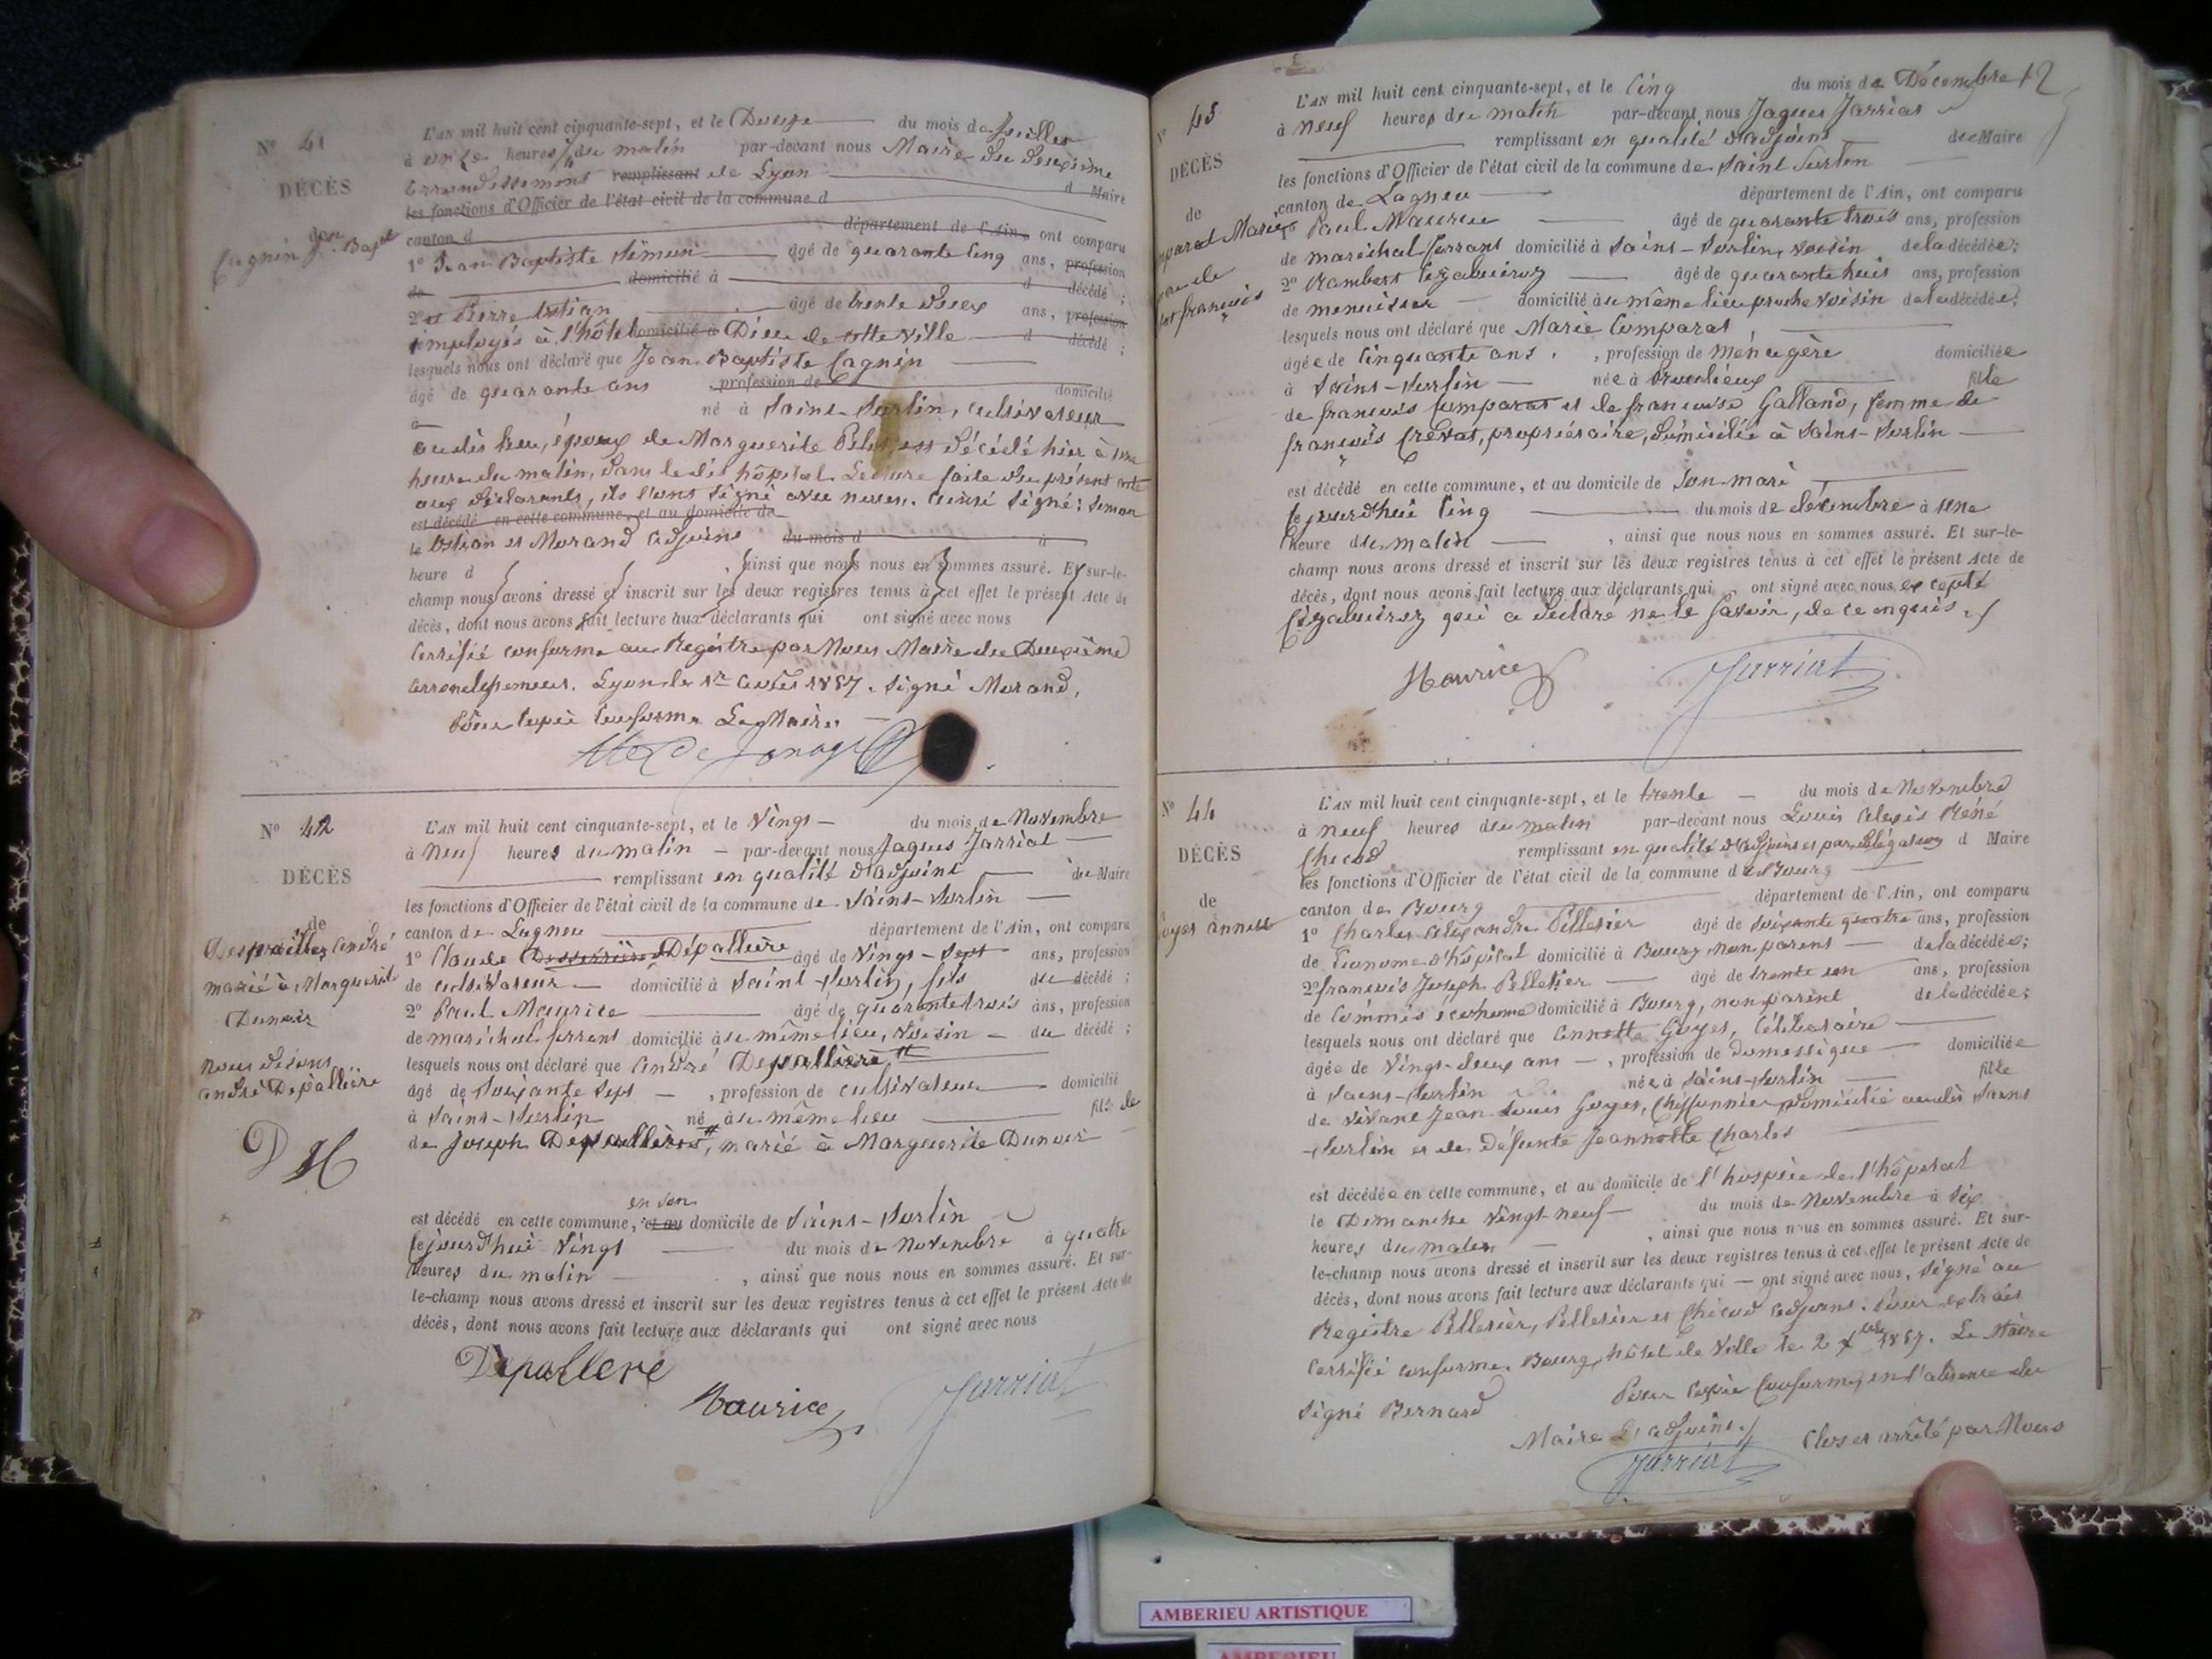 N° 41
DÉCÈS
Cagnin Jean Bapte
L'AN mil huit cent cinquante-sept, et le Douze du mois de Juillet
à onze heures du matin par-devant nous Maire du deuxième
arrondissement remplissant de Lyon d Maire
les fonctions d'Officier de l'état civil de la commune d
canton d département de l'Ain, ont comparu
1° Jean Baptiste Simon âgé de quarante cinq ans, profession
de domicilié à d décédé ;
2° et Pierre Ostian âgé de trente deux ans, profession
employés à l'hôtel domicilié à Dieu de cette ville d décédé ;
lesquels nous ont déclaré que Jean Baptiste Cagnin
âgé de quarante ans , profession de domicilié
à né à Saint-Sorlin, cultivateur
audit lieu, époux de Marguerite est décédé hier à une
heure du matin, dans le dit hôpital. Lecture faite du présent acte
aux déclarants, ils l'ont signé avec nous. Ainsi signé : Simon
est décédé en cette commune, et au domicile de
le Ostian et Morand adjoint du mois d à
heure d , ainsi que nous nous en sommes assuré. Et sur-le-
champ nous avons dressé et inscrit sur les deux registres tenus à cet effet le présent Acte de
décès, dont nous avons fait lecture aux déclarants qui ont signé avec nous
Certifié conforme au Registre par Nous Maire du Deuxième
arrondissement. Lyon le 1er Août 1857. Signé Morand,
Pour Copie Conforme Le Maire
N° 42
DÉCÈS
de
André
marié à Marguerite
Dunoir
nous disons
andré Depallière
D H
L'AN mil huit cent cinquante-sept, et le vingt du mois de Novembre
à Neuf heures du matin par-devant nous Jaques Jarriat
remplissant en qualité d'adjoint du Maire
les fonctions d'Officier de l'état civil de la commune de Saint-Sorlin
canton de Lagneu département de l'Ain, ont comparu
1° Claude Dépallière âgé de vingt-sept ans, profession
de cultivateur domicilié à Saint-Sorlin, fils du décédé ;
2° Paul Maurice âgé de quarante trois ans, profession
de maréchal ferrent domicilié au même lieu, voisin du décédé ;
lesquels nous ont déclaré que André Depallière
âgé de Soixante sept , profession de cultivateur domicilié
à Saint-Sorlin né au même lieu fils de
de Joseph Depallière, marié à Marguerite Dunoir
en son
est décédé en cette commune, et au domicile de Saint-Sorlin
cejourd'hui vingt du mois de Novembre à quatre
heures du matin , ainsi que nous nous en sommes assuré. Et sur-
le-champ nous avons dressé et inscrit sur les deux registres tenus à cet effet le présent Acte de
décès, dont nous avons fait lecture aux déclarants qui ont signé avec nous
Depallere
Maurice Jarriat
12
N° 43
DÉCÈS
de
Marie
françois
L'AN mil huit cent cinquante-sept, et le Cinq du mois de Décembre
à Neuf heures du matin par-devant nous Jaques Jarriat
remplissant en qualité d'adjoint du Maire
les fonctions d'Officier de l'état civil de la commune de Saint Sorlin
canton de Lagneu département de l'Ain, ont comparu
1° Paul Maurice âgé de quarante trois ans, profession
de maréchal ferrant domicilié à Saint-Sorlin, voisin de la décédée ;
2° Rambert âgé de quarante huit ans, profession
de menuisier domicilié au même lieu proche voisin de la décédée ;
lesquels nous ont déclaré que Marie Comparat
âgée de Cinquante ans , profession de Ménagère domiciliée
à Saint-Sorlin née à fille
de françois Comparat et de françoise Galland, femme de
françois Crevat, propriétaire, domicilié à Saint-Sorlin
est décédé en cette commune, et au domicile de son mari
cejourd'hui Cinq du mois de décembre à une
heure du matin , ainsi que nous nous en sommes assuré. Et sur-le-
champ nous avons dressé et inscrit sur les deux registres tenus à cet effet le présent Acte de
décès, dont nous avons fait lecture aux déclarants qui ont signé avec nous excepté
qui a déclaré ne le savoir, de ce enquis.
Maurice Jarriat
N° 44
DÉCÈS
de
Goyet annette
L'AN mil huit cent cinquante-sept, et le trente du mois de Novembre
à neuf heures du matin par-devant nous Louis Alexis Réné
Chicod remplissant en qualité d'adjoint et par délégation d Maire
les fonctions d'Officier de l'état civil de la commune de Bourg
canton de Bourg département de l'Ain, ont comparu
1° Charles Alexandre Pelletier âgé de soixante quatre ans, profession
de Econome d'hôpital domicilié à Bourg, non parent de la décédée ;
2° françois Joseph Pelletier âgé de trente un ans, profession
de Commis économe domicilié à Bourg, non parent de la décédée ;
lesquels nous ont déclaré que Annette Goyet, Célibataire
âgée de Vingt-deux ans , profession de domestique domiciliée
à Saint-Sorlin née à Saint-Sorlin fille
de vivant Jean Louis Goyet, Chiffonnier domicilié audit Saint
-Sorlin et de Défunte Jeannette Charles
est décédée en cette commune, et au domicile de l'hospice de l'hôpital
le Dimanche vingt-neuf du mois de Novembre à six
heures du matin , ainsi que nous nous en sommes assuré. Et sur-
le-champ nous avons dressé et inscrit sur les deux registres tenus à cet effet le présent Acte de
décès, dont nous avons fait lecture aux déclarants qui ont signé avec nous, signé au
Registre Pelletier, Pelletier et Chicod adjoint. Pour extrait
Certifié conforme. Bourg, hôtel de Ville le 2 Xbre 1857. Le Maire
Signé Bernard Pour Copie Conforme, en l'absence du
Maire L'adjoint. Clos et arrêté par Nous
Jarriat
AMBERIEU ARTISTIQUE
AMBERIEU